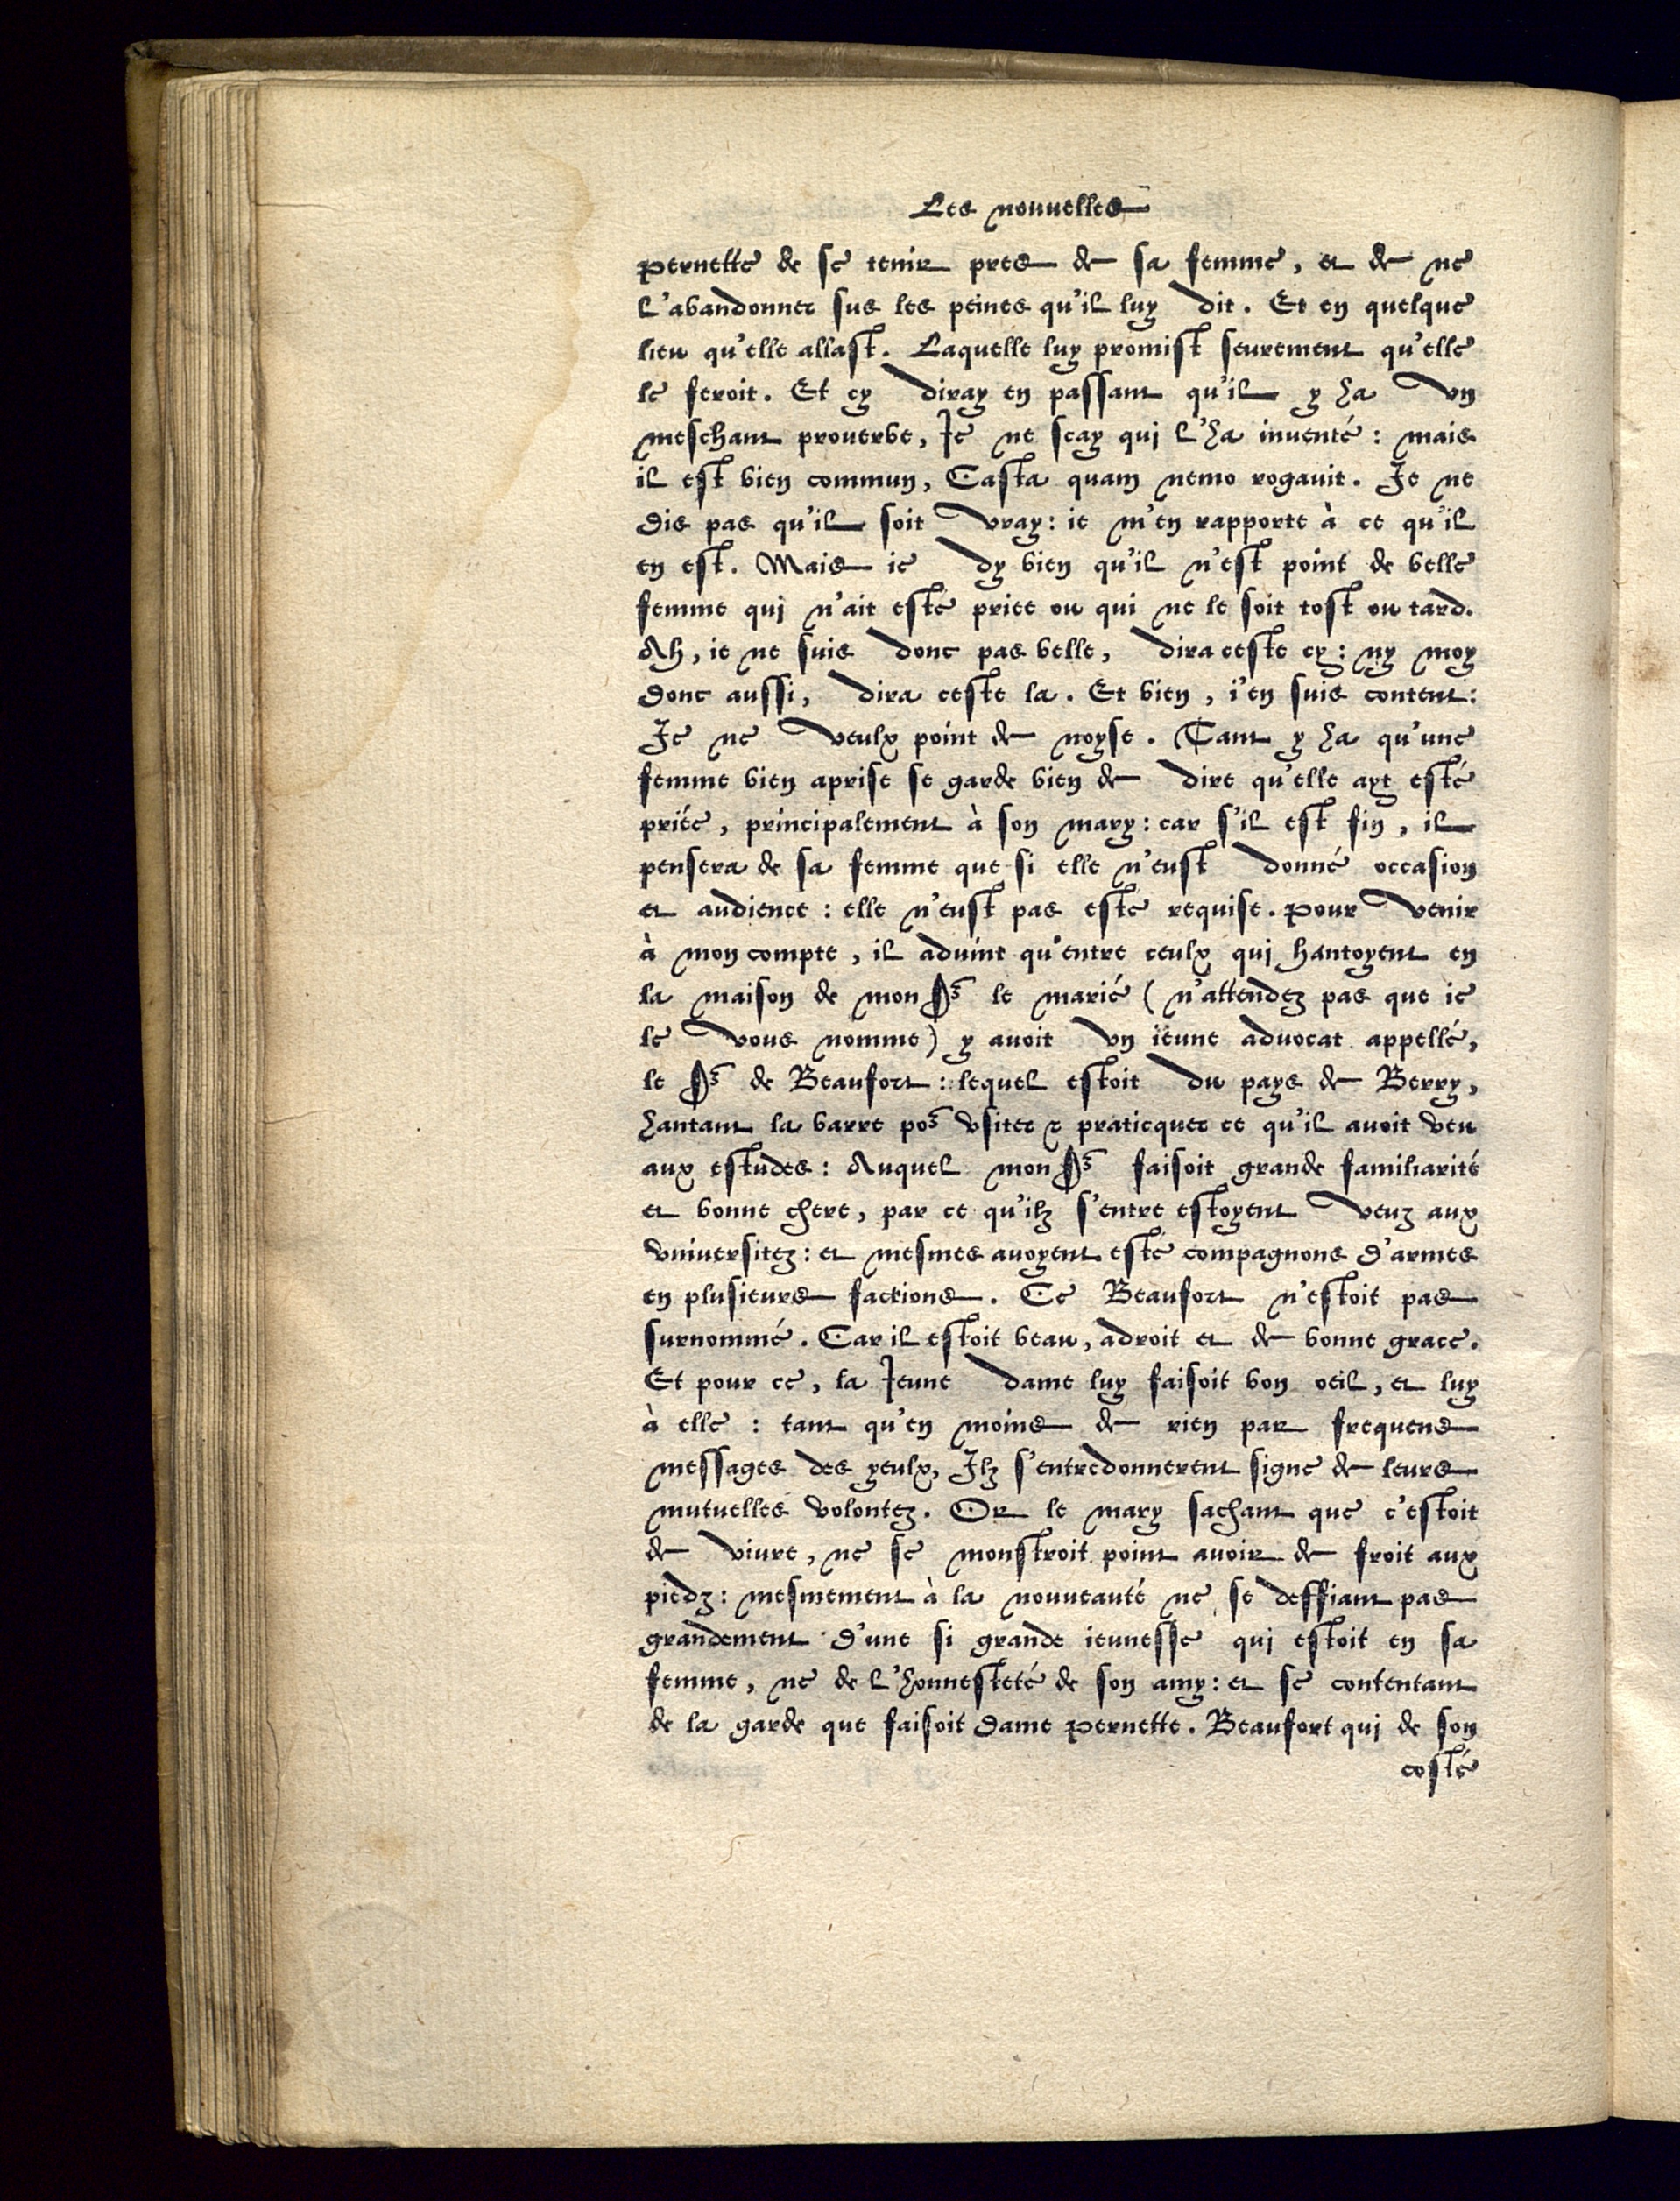 Les nouuelles
Pernette de se tenir pres de sa femme, et de ne
l'abandonner sus les peines qu'il luy dit. Et en quelque
lieu qu'elle allast. Laquelle luy promist seurement qu'elle
le feroit. Et cy diray en passant qu'il y ha vn
meschant prouerbe, Ie ne scay qui l'ha inuenté: mais
il est bien commun, Casta quam nemo rogauit. Ie ne
dis pas qu'il soit vray: ie m'en rapporte à ce qu'il
en est. Mais ie dy bien qu'il n'est point de belle
femme qui n'ait esté priee ou qui ne le soit tost ou tard.
Ah, ie ne suis donc pas belle, dira ceste cy: ny moy
donc aussi, dira ceste la. Et bien, i'en suis content:
Ie ne veulx point de noyse. Tant y ha qu'une
femme bien aprise se garde bien de dire qu'elle ayt esté
priée, principalement à son mary: car s'il est fin, il
pensera de sa femme que si elle n'eust donné occasion
et audience: elle n'eust pas esté requise. Pour venir
à mon compte, il aduint qu'entre ceulx qui hantoyent en
la maison de mon Sr le marié (n'attendez pas que ie
le vous nomme) y auoit vn ieune aduocat appellé,
le Sr de Beaufort: lequel estoit du pays de Berry,
hantant la barre por vsiter & praticquer ce qu'il auoit veu
aux estudes: Auquel mon Sr faisoit grande familiarité
et bonne chere, par ce qu'ilz s'entre estoyent veuz aux
vniuersitez: et mesmes auoyent esté compagnons d'armes
en plusieurs factions. Ce Beaufort n'estoit pas
surnommé. Car il estoit beau, adroit et de bonne grace.
Et pour ce, la Ieune dame luy faisoit bon oeil, et luy
à elle: tant qu'en moins de rien par frequens
messages des yeulx, Ilz s'entredonnerent signe de leurs
mutuelles volontez. Or le mary sachant que c'estoit
de viure, ne se monstroit point auoir de froit aux
piedz: mesmement à la nouueauté ne se deffiant pas
grandement d'une si grande ieunesse qui estoit en sa
femme, ne de l'honnesteté de son amy: et se contentant
de la garde que faisoit dame Pernette. Beaufort qui de son
costé